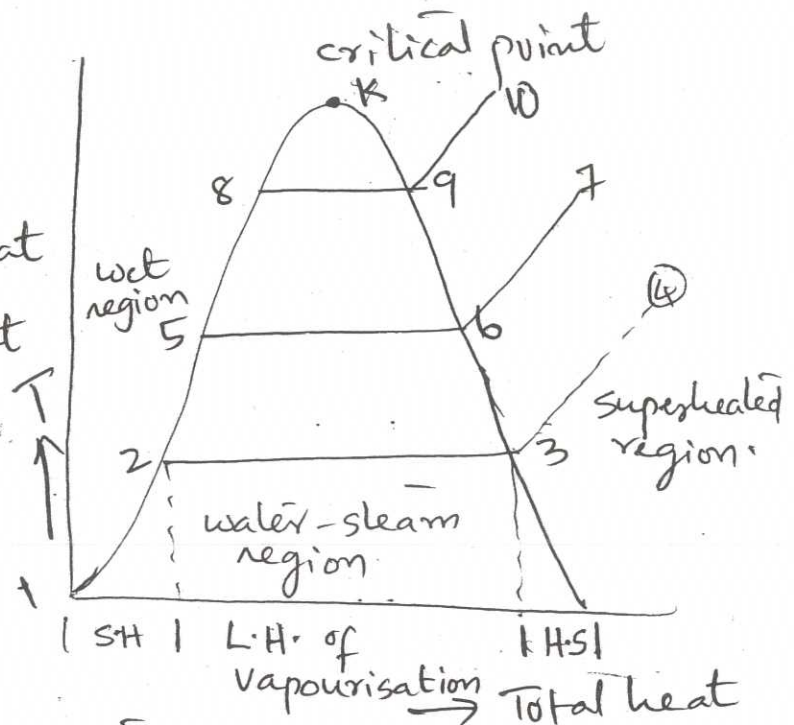 critical point
K
10
8
9
7
at
wet
region
④
5
6
t
T
superheated
region.
2
3
water-steam
region
1
| S.H | L.H. of | H.S |
Vapourisation → Total heat